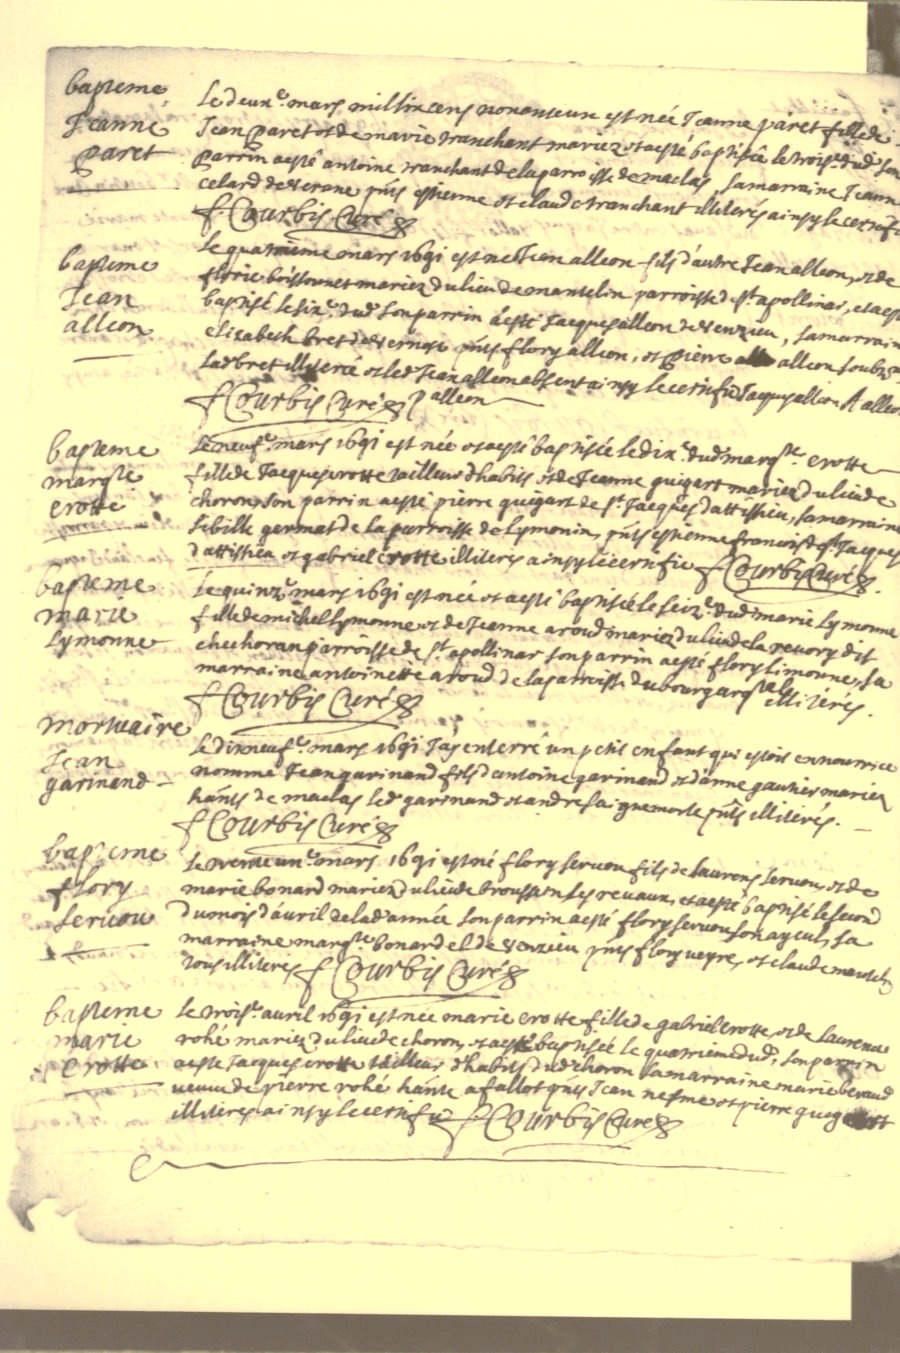 bapteme
Jeanne
paret
Le deux.e mars mil six cens nonante un est née Jeanne paret fille de
Jean paret et de marie tranchant mariez et a esté baptisée le trois.e dud. son
parrin a esté antoine tranchant de la parroisse de maclas, sa marraine Jeanne
celard de verane pnts estienne et claude tranchant illiterés ainsy le certifie
f Courbis Curé
bapteme
Jean
alleon
Le quatrieme mars 1691 est né Jean alleon fils d'autre Jean alleon, et de
florie boissonnet mariez du lieu de mantelin parroisse de st apollinar, et a esté
baptisé le six.e dud. son parrin a esté Jacques alleon de venzieu, sa marraine
elizabeth bret de vernose pnts flory alleon, et pierre alleon soubz
lad bret illiterée et led Jean alleon absent ainsy le certifie Jacques alleon A alleon
f Courbis Curé P alleon
bapteme
margte
crotte
Le neuf.e mars 1691 est née et a esté baptisée le dix.e dud margte crotte
fille de Jacques crotte tailleur d'habits et de Jeanne guigart mariez du lieu de
choron, son parrin a esté pierre guigart de st Jacques d'attissieu, sa marraine
sibille germat de la parroisse de lymonin, pnts estienne francois de st Jacques
d'attissieu et gabriel crotte illiterés ainsy le certifie f Courbis Curé
bapteme
marie
Lymonne
Le quinz.e mars 1691 est née et a esté baptisée le seiz.e dud marie Lymonne
fille de michel Lymonne et de Jeanne aroud mariez du lieu de la revory dit
chechoran parroisse de st apollinar son parrin a esté flory limonne, sa
marraine antoinette aroud de la parroisse du bourg arg.al illiterés.
f Courbis Curé
mortuaire
Jean
garinand
Le dixneuf.e mars 1691 J'ay enterré un petit enfant qui estoit en nourrice
nommé Jean garinand fils d'antoine garinand et d'anne gautier mariez
hants de maclas led garinand et andre saignemorte pnts illiterés.
f Courbis Curé
bapteme
flory
servou
Le trente un.e mars 1691 est né flory servou fils de laurens servou, et de
marie bonard mariez du lieu de broussin les revaux, et a esté baptisé le second
du mois d'avril de lad année son parrin a esté flory servou son ayeul, sa
marraine margte bonardel de venzieu pnts flory veyre, et claude
tous illiterés f Courbis Curé
bapteme
marie
crotte
Le trois.e avril 1691 est née marie crotte fille de gabriel crotte et de laurence
rohé mariez du lieu de choron, et a esté baptisée le quatrieme dud, son parrin
a esté Jacques crotte tailleur d'habits dud choron sa marraine marie beraud
veuve de pierre rohé hante a fallot pnts Jean nesme et pierre
illiterés ainsy le certifie f Courbis Curé